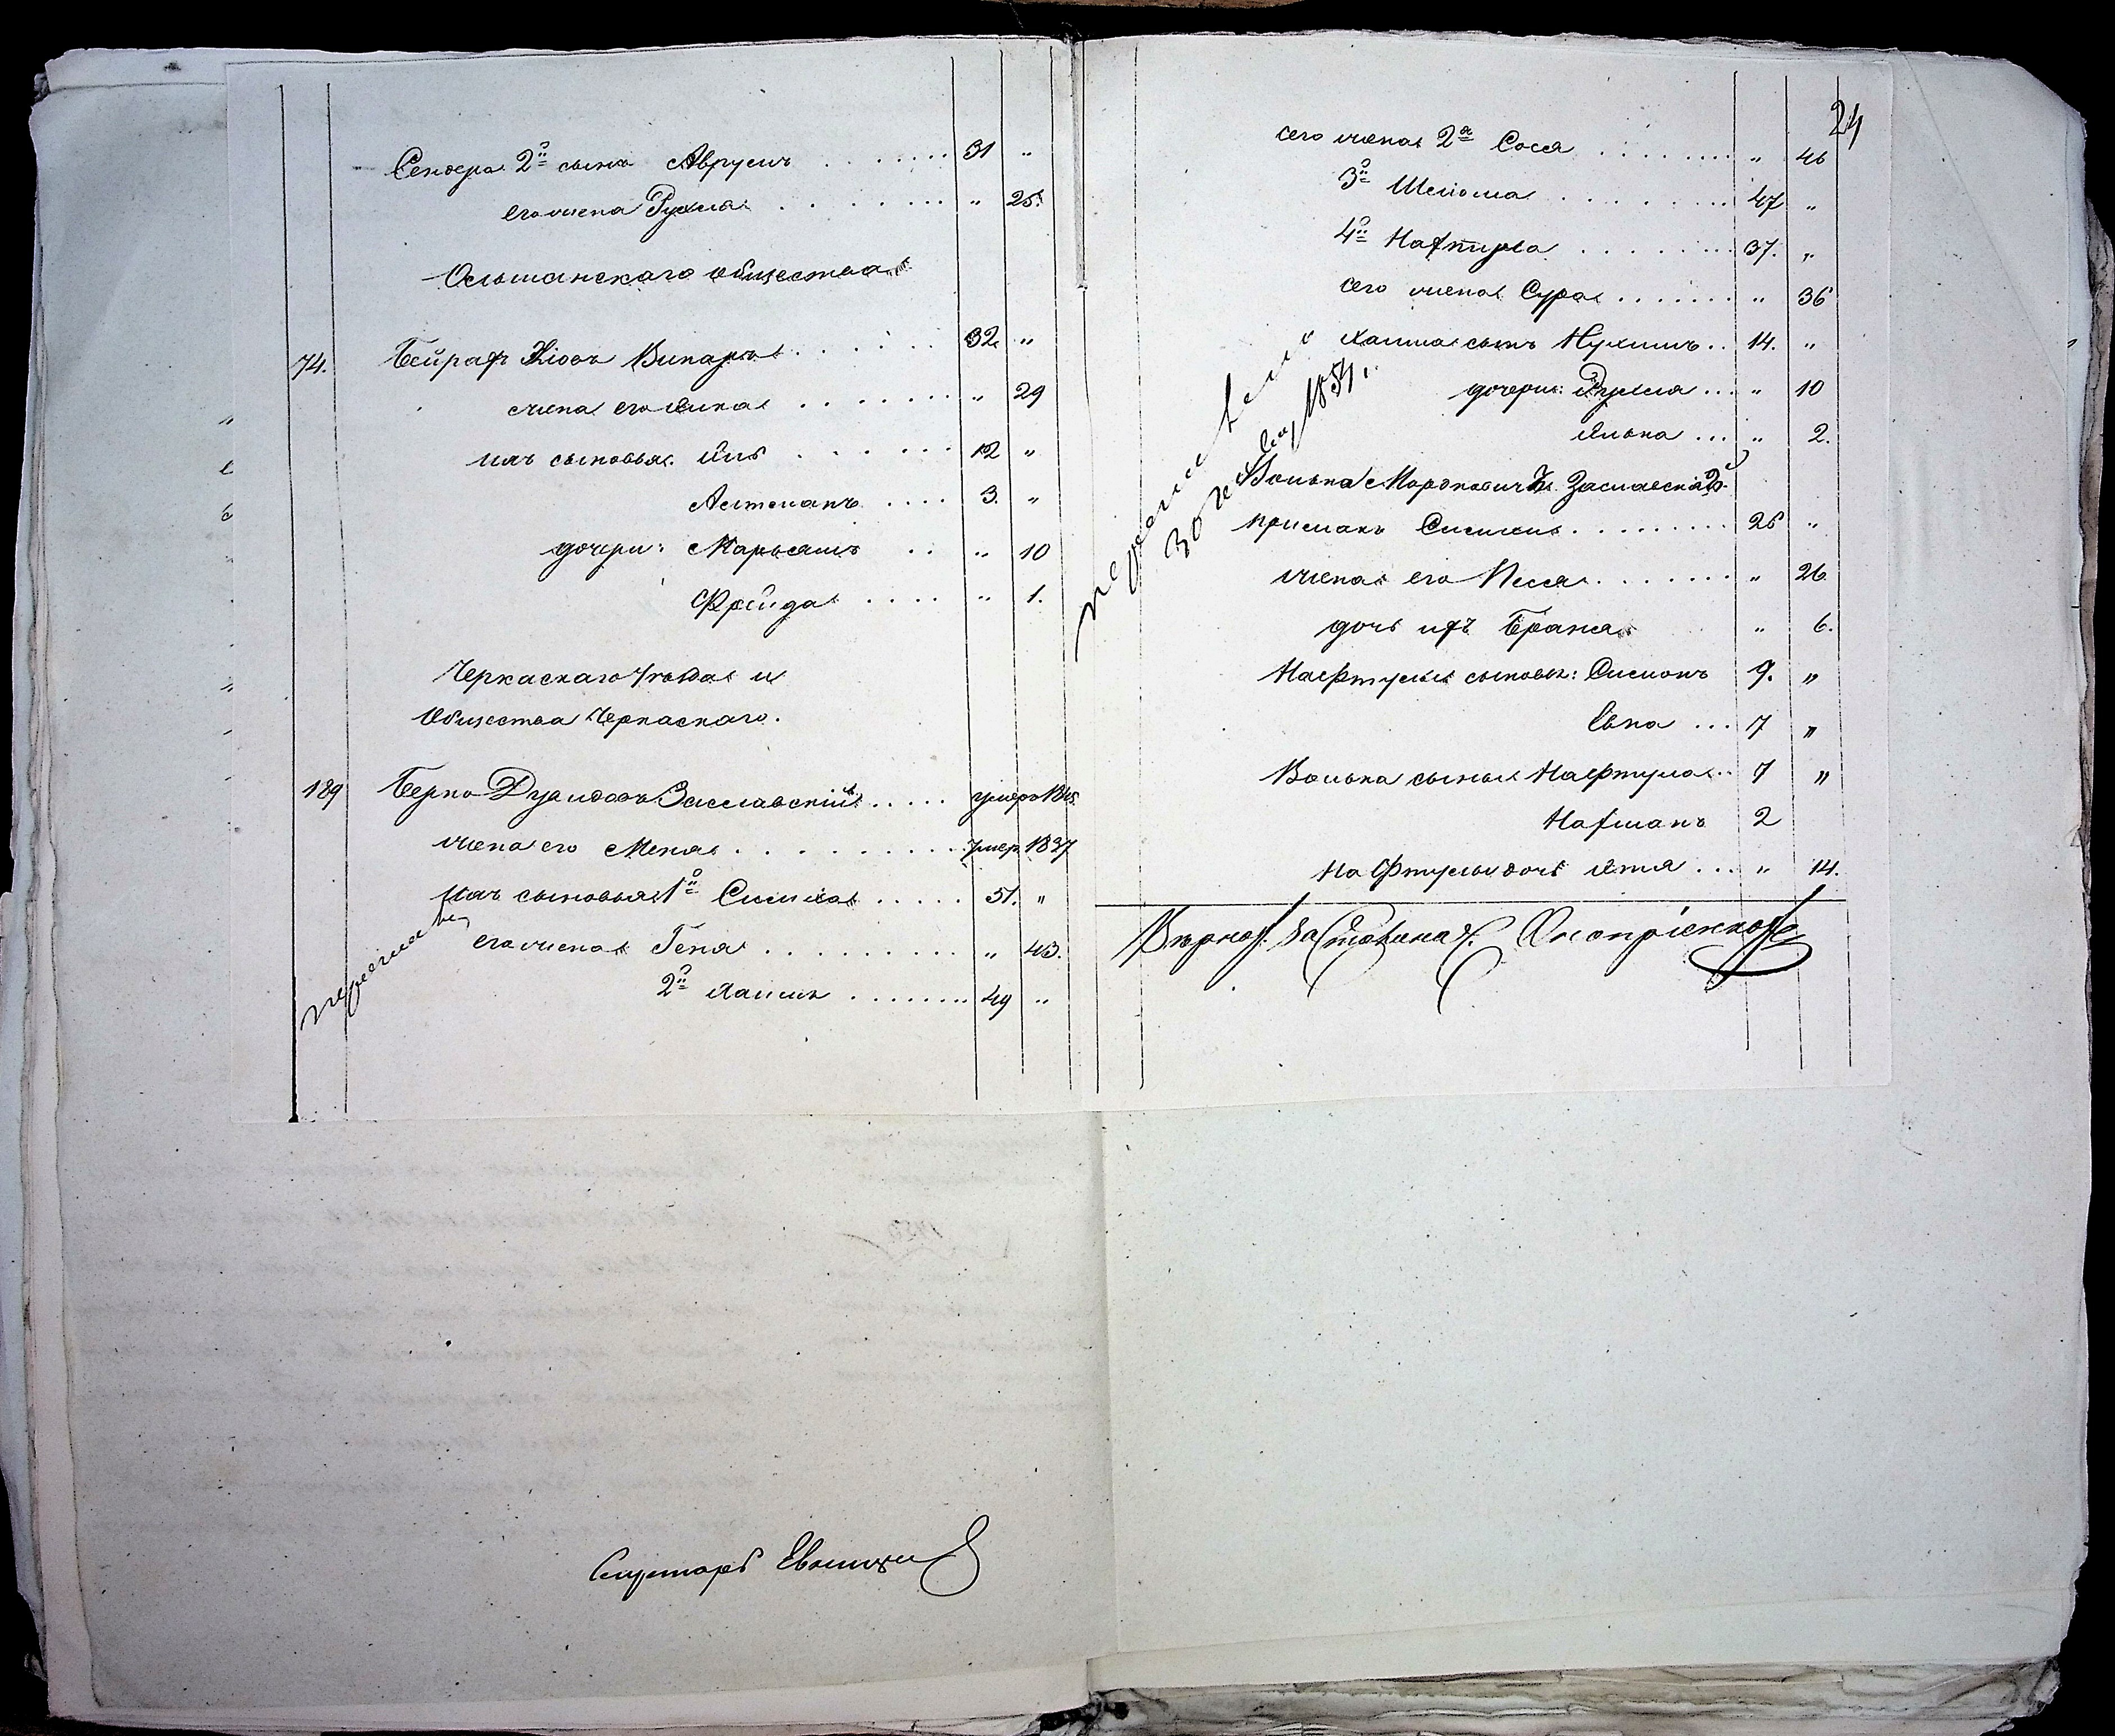 Сендера 2й сынъ Аврумъ . . . . . . . 31 „
его жена Рухля . . . . . . . . „ 25.
Ольшанскаго общества
74. Бейрахъ Хіовъ Винаръ . . . . . . 32 „
жена его Ента . . . . . . . „ 29
ихъ сыновья: Иль . . . . . . 12 „
Аслманъ . . . . 3. „
дочери: Марьямъ . . „ 10
Фрейда . . . . „ 1.
Черкаскаго Уѣзда и
Общества Черкаскаго.
189 Берко Дувидовъ Заславскій . . . . . умеръ 1845
жена его Меня . . . . . . . . . умер. 1837
ихъ сыновья 1й Симха . . . . . 51. „
его жена Геня . . . . . . . . . „ 43.
2й Хаимъ . . . . . . . 49 „
перечислены
24
его жена 2я Сося . . . . . . . . „ 46
3й Шлиома . . . . . . . . . 47 „
4й Нафтула . . . . . . . . 37. „
его жена Сура . . . . . . „ 36
Хаима сынъ Нухимъ . . 14. „
дочери: Рухля . . . „ 10
Элька . . . „ 2.
Волька Мордковичъ Заславскій
приемакъ Симхи . . . . . . . . . 25 „
жена его Песя . . . . . . . „ 26
дочь ихъ Браня „ 6.
Нафтулы сыновья: Симонъ 9. „
Евка . . . 7 „
Волька сынъ Нафтула . . 7 „
Нахманъ 2
Нафтулы дочь Этя . . . „ 14.
перечислены
1854 г.
Вѣрно: За Стовиная. Онопріенко
Секретарь